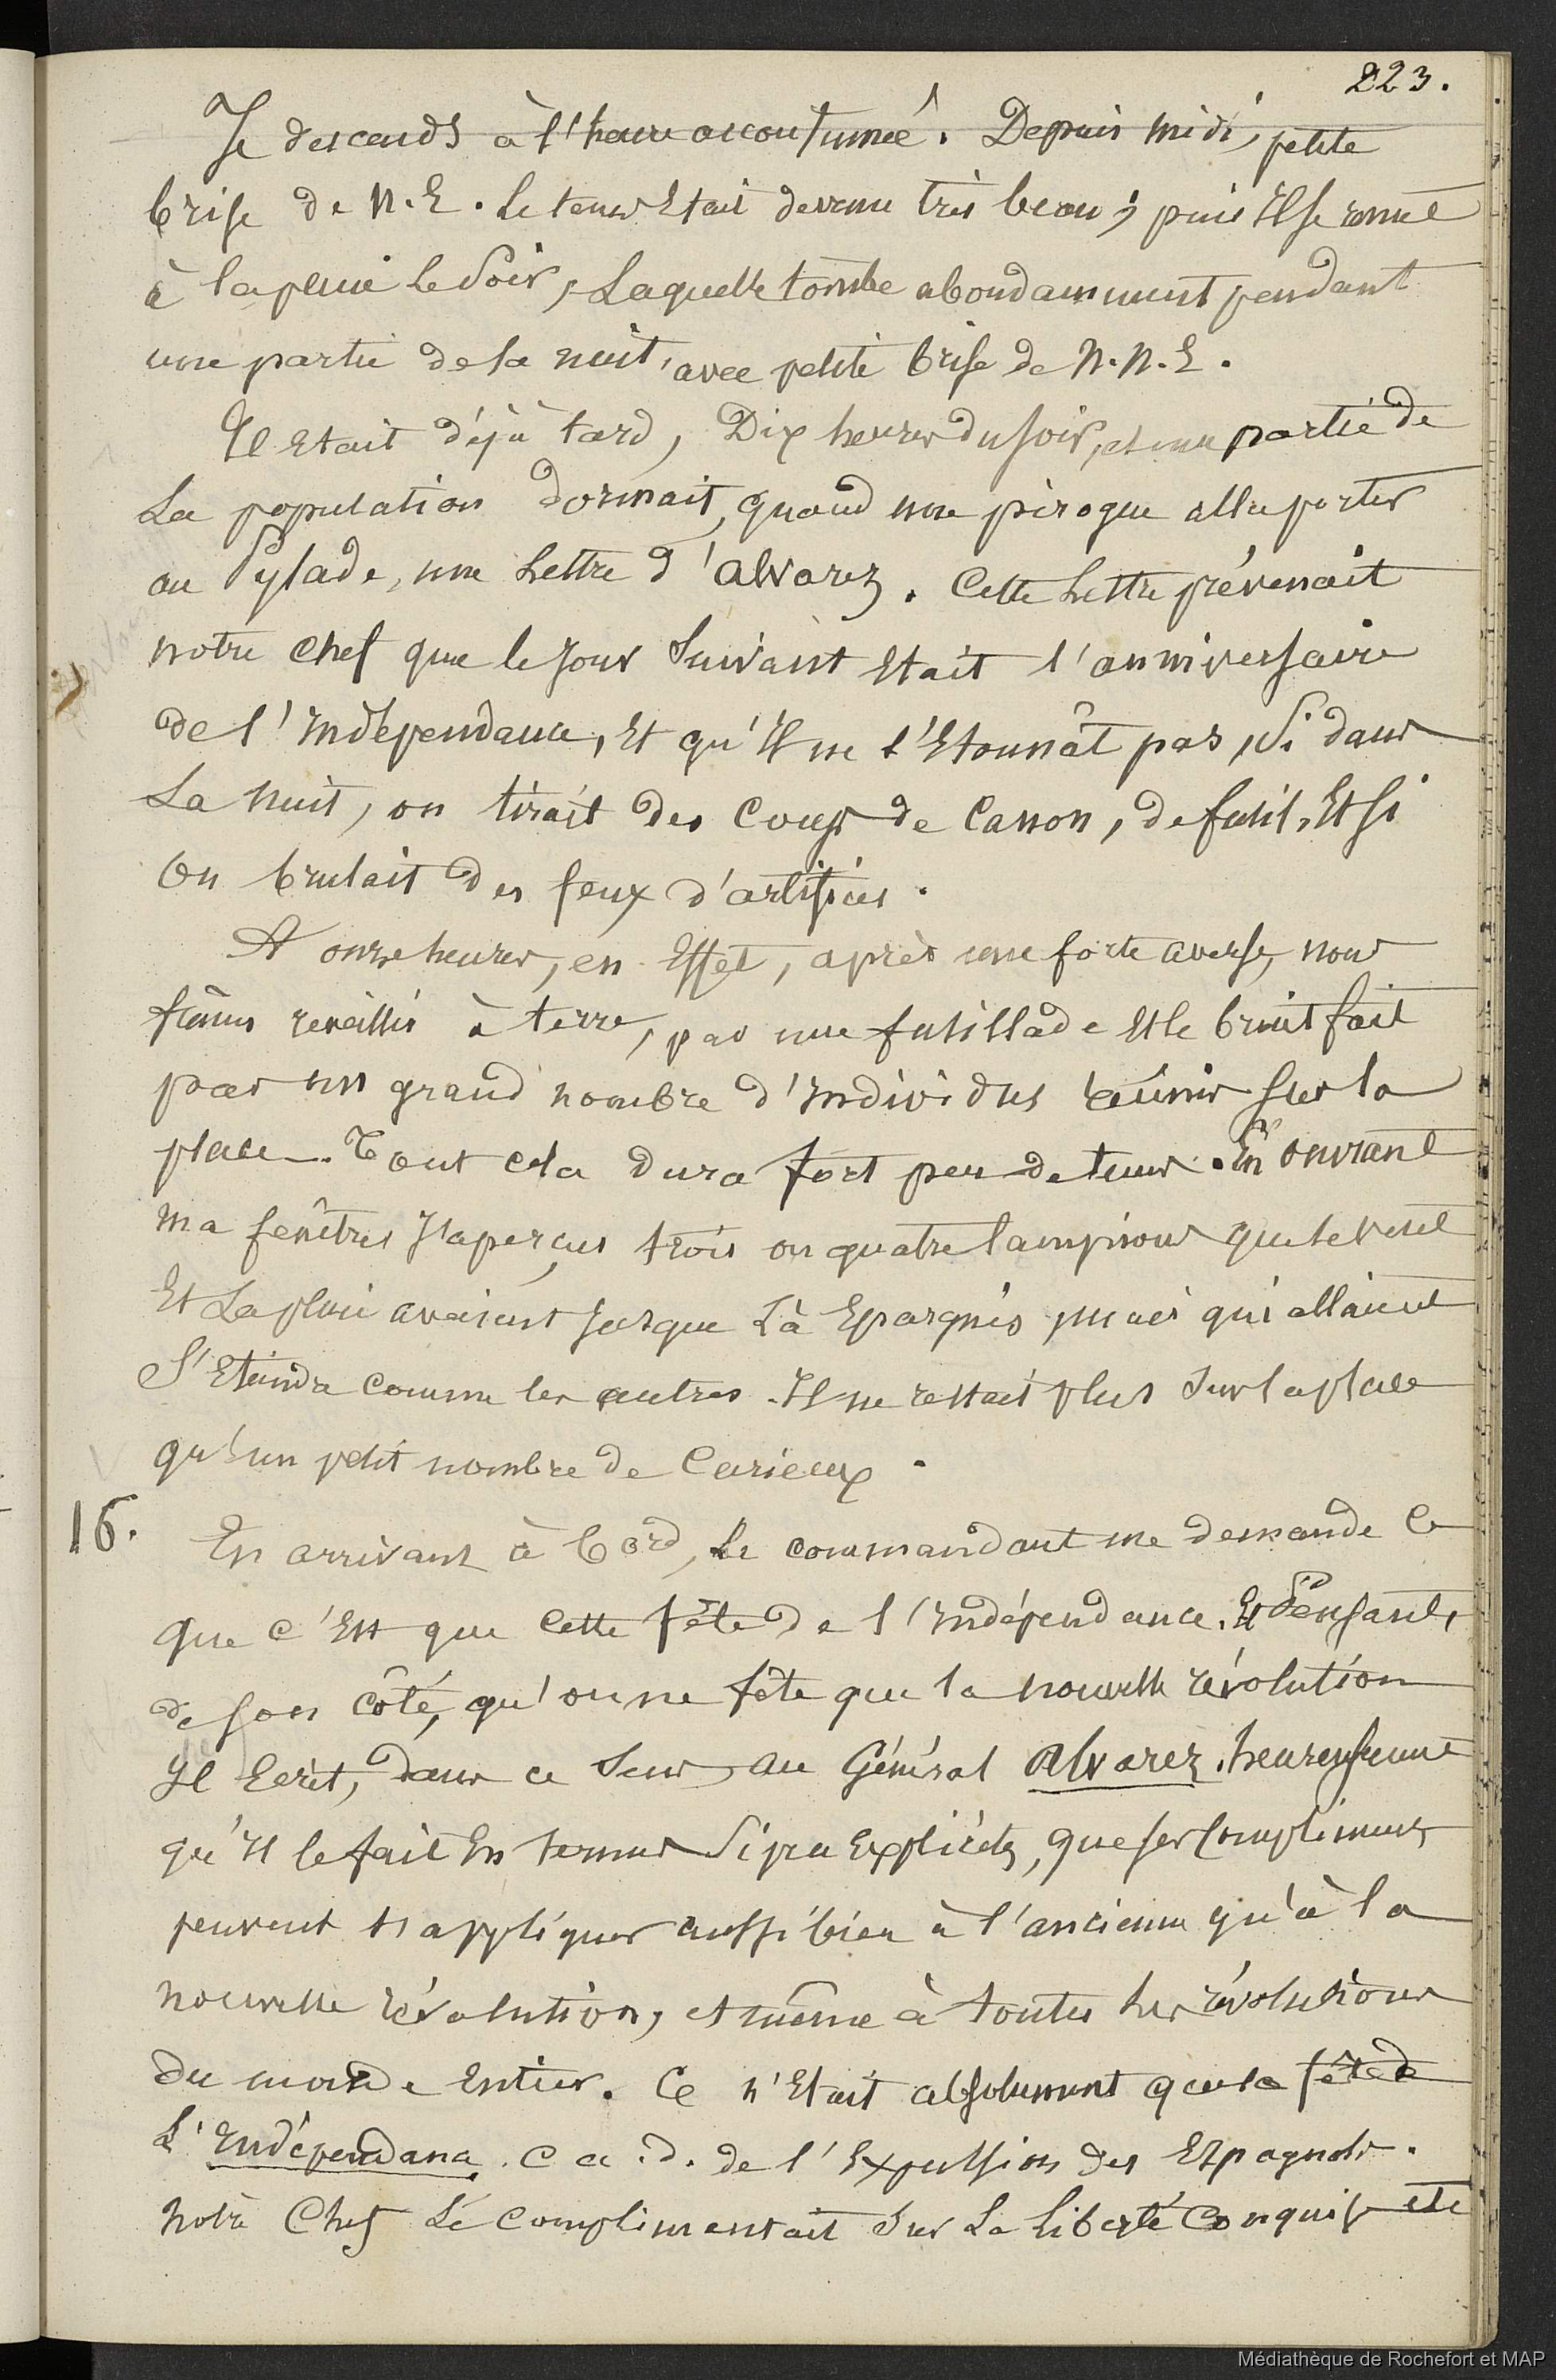 223.
Je descends à l'heure accoutumée. Depuis midi, petite
brise de N.E. Le tems Etait devenu très beau ; puis Il se remet
à la pluie le Soir, Laquelle tombe abondamment pendant
une partie de la nuit, avec petite brise de N.N.E.
Il Etait déjà tard, Dix heures du soir, et une partie de
La population dormait, quand une pirogue alla porter
au Pylade, une Lettre d'Alvarez. Cette Lettre prévenait
notre chef que le jour Suivant Etait l'anniversaire
de l'Indépendance, Et qu'Il ne s'Etonnât pas, Si dans
La nuit, on tirait des Coups de Canon, de fusil, Et si
On brulait des feux d'artifices.
A onze heures, en Effet, après une forte averse, nous
fûmes reveillés à terre, par une fusillade Et le bruit fait
par un grand nombre d'Individus réunis sur la
place. Tout cela dura fort peu de tems. En ouvrant
ma fenêtres J'aperçus trois ou quatre lampions que le vent
Et La pluie avaient jusque Là Epargnés mais qui allaient
S'Eteindre comme les autres. Il ne restait plus Sur la place
qu'un petit nombre de Curieux.
16.
En arrivant à bord, Le commandant me demande Ce
que c'Est que cette fête de l'Indépendance. Et pensant,
de son côté, qu'on ne fête que la nouvelle révolution
Il Ecrit, dans ce Sens, au Général Alvarez. heureusement
qu'Il le fait En termes Si peu Explicites, que ses Compliments
peuvent s'appliquer aussi bien à l'ancienne qu'à la
nouvelle révolution, et même à toutes les révolutions
du monde Entier. Ce n'Etait absolument que la fête de
L'Indépendance. C a. d. de l'Expulsion des Espagnols.
Notre Chef Le Complimentait Sur La Liberté Conquise etc
Médiathèque de Rochefort et MAP